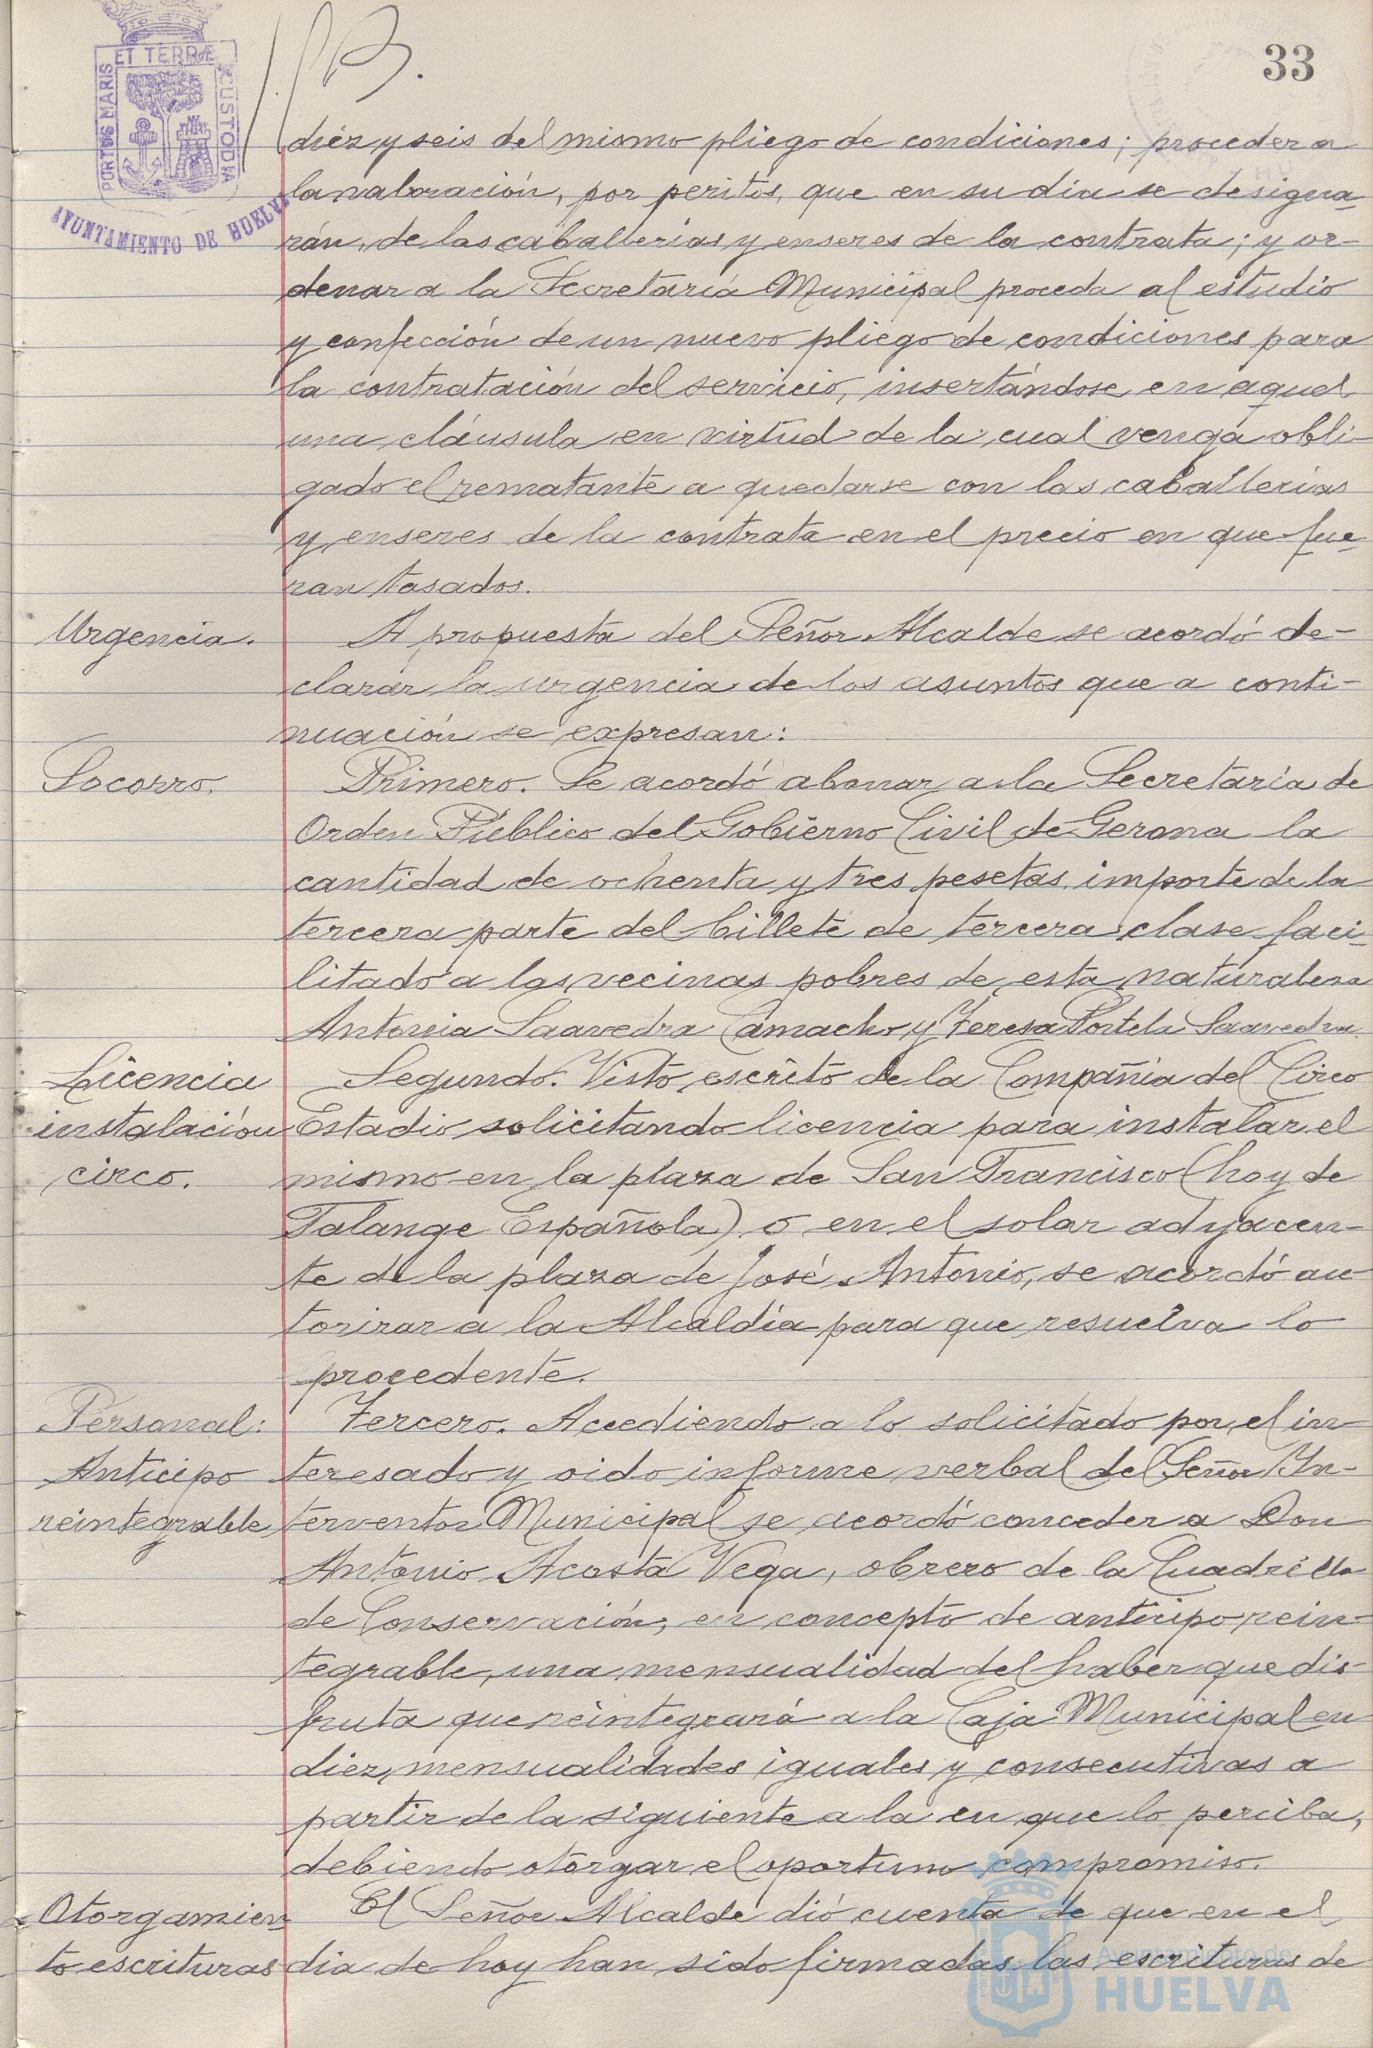 PORTUS MARIS ET TERRÆ CUSTODIA
AYUNTAMIENTO DE HUELVA
33
diez y seis del mismo pliego de condiciones; proceder a
la valoración, por peritos, que en su dia se designa-
rán, de las caballerias y enseres de la contrata; y or-
denar a la Secretaría Municipal proceda al estudio
y confección de un nuevo pliego de condiciones para
la contratación del servicio, insertándose en aquel
una cláusula en virtud de la cual venga obli-
gado el rematante a quedarse con las caballerias
y enseres de la contrata en el precio en que fue-
ran tasados.
Urgencia.
A propuesta del Señor Alcalde se acordó de-
clarar la urgencia de los asuntos que a conti-
nuación se expresan:
Socorro.
Primero. Se acordó abonar a la Secretaría de
Orden Público del Gobierno Civil de Gerona la
cantidad de ochenta y tres pesetas importe de la
tercera parte del billete de tercera clase faci-
litado a las vecinas pobres de esta naturaleza
Antonia Saavedra Camacho y Teresa Portela Saavedra.
Licencia
instalación
circo.
Segundo. Visto escrito de la Compañia del Circo
Estadio solicitando licencia para instalar el
mismo en la plaza de San Francisco (hoy de
Falange Española) o en el solar adyacen-
te de la plaza de José Antonio, se acordó au-
torizar a la Alcaldía para que resuelva lo
procedente.
Personal:
Anticipo
reintegrable
Tercero. Accediendo a lo solicitado por el in-
teresado y oido informe verbal del Señor In-
terventor Municipal se acordó conceder a Don
Antonio Acosta Vega, obrero de la Cuadrilla
de Conservación, en concepto de anticipo rein-
tegrable, una mensualidad del haber que dis-
fruta que reintegrará a la Caja Municipal en
diez mensualidades iguales y consecutivas a
partir de la siguiente a la en que lo perciba,
debiendo otorgar el oportuno compromiso.
Otorgamien-
to escrituras
El Señor Alcalde dió cuenta de que en el
dia de hoy han sido firmadas las escrituras de
Ayuntamiento de
HUELVA